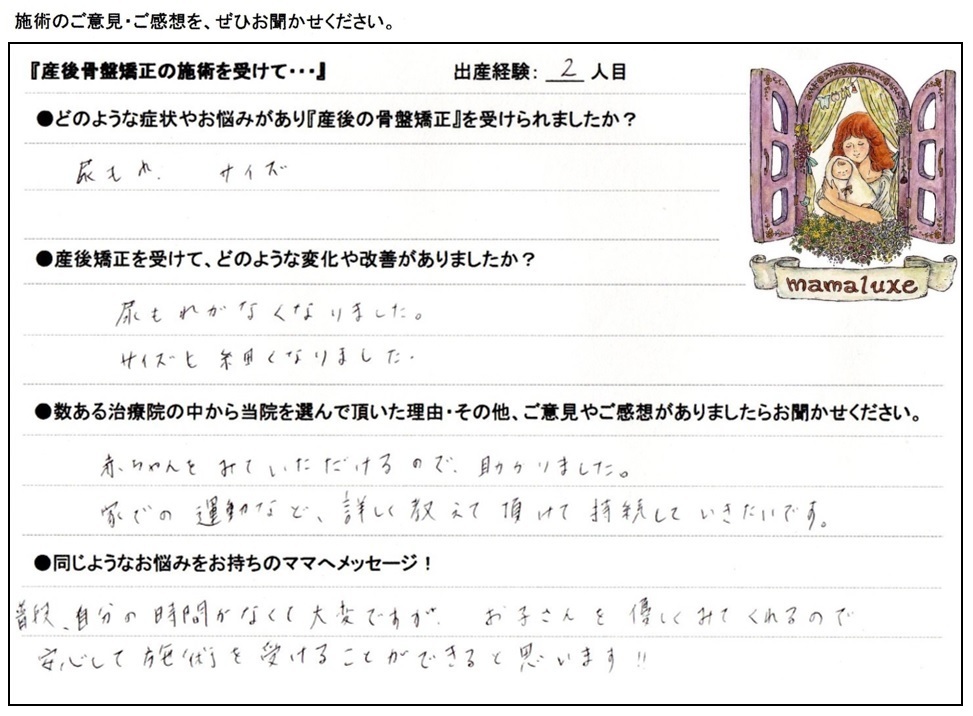 施術のご意見・ご感想を、ぜひお聞かせください。
『産後骨盤矯正の施術を受けて・・・』 出産経験： 2 人目
●どのような症状やお悩みがあり『産後の骨盤矯正』を受けられましたか？
尿もれ、 サイズ
●産後矯正を受けて、どのような変化や改善がありましたか？
mamaluxe
尿もれがなくなりました。
サイズも細くなりました。
●数ある治療院の中から当院を選んで頂いた理由・その他、ご意見やご感想がありましたらお聞かせください。
赤ちゃんをみていただけるので、助かりました。
家での運動など、詳しく教えて頂けて持続していきたいです。
●同じようなお悩みをお持ちのママへメッセージ！
普段、自分の時間がなくて大変ですが、お子さんを優しくみてくれるので
安心して施術を受けることができると思います!!